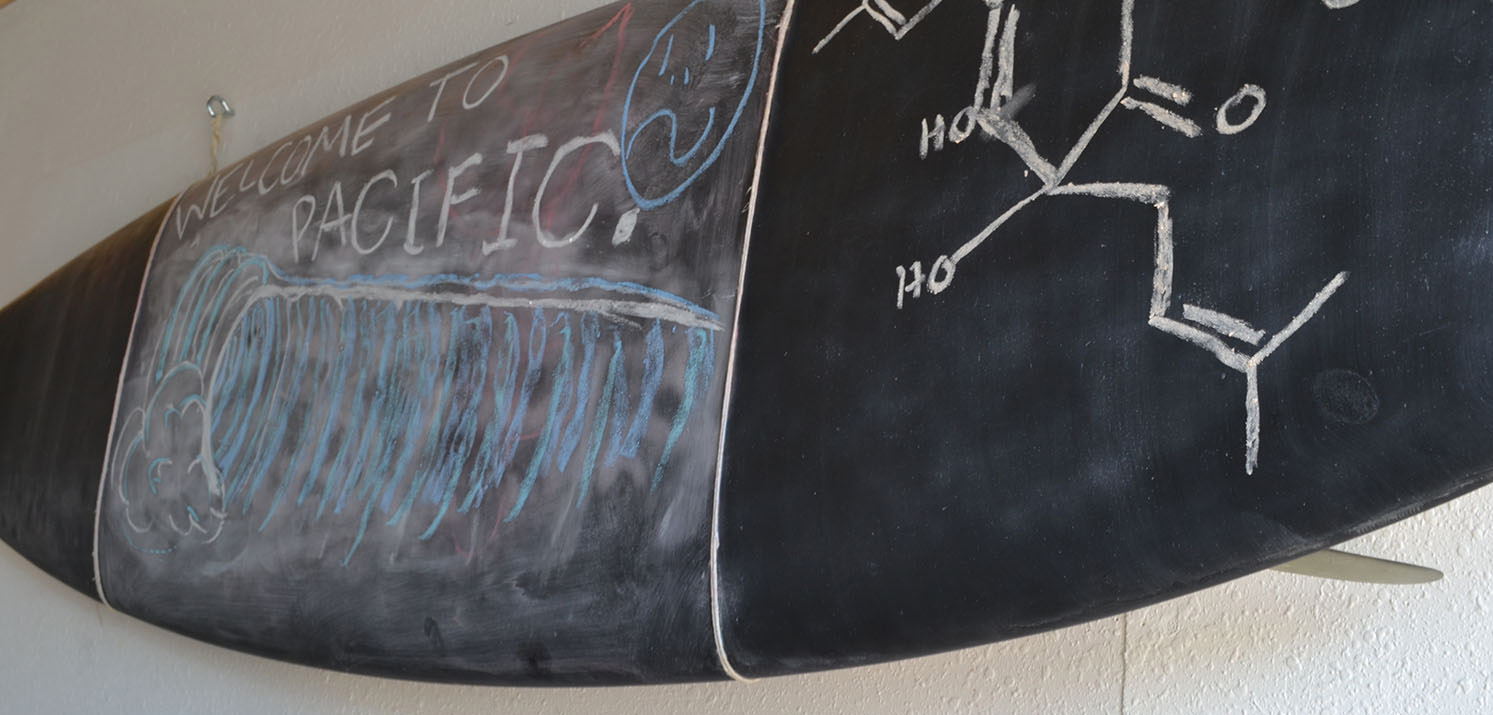 WELCOME TO
PACIFIC.
HO
O
HO